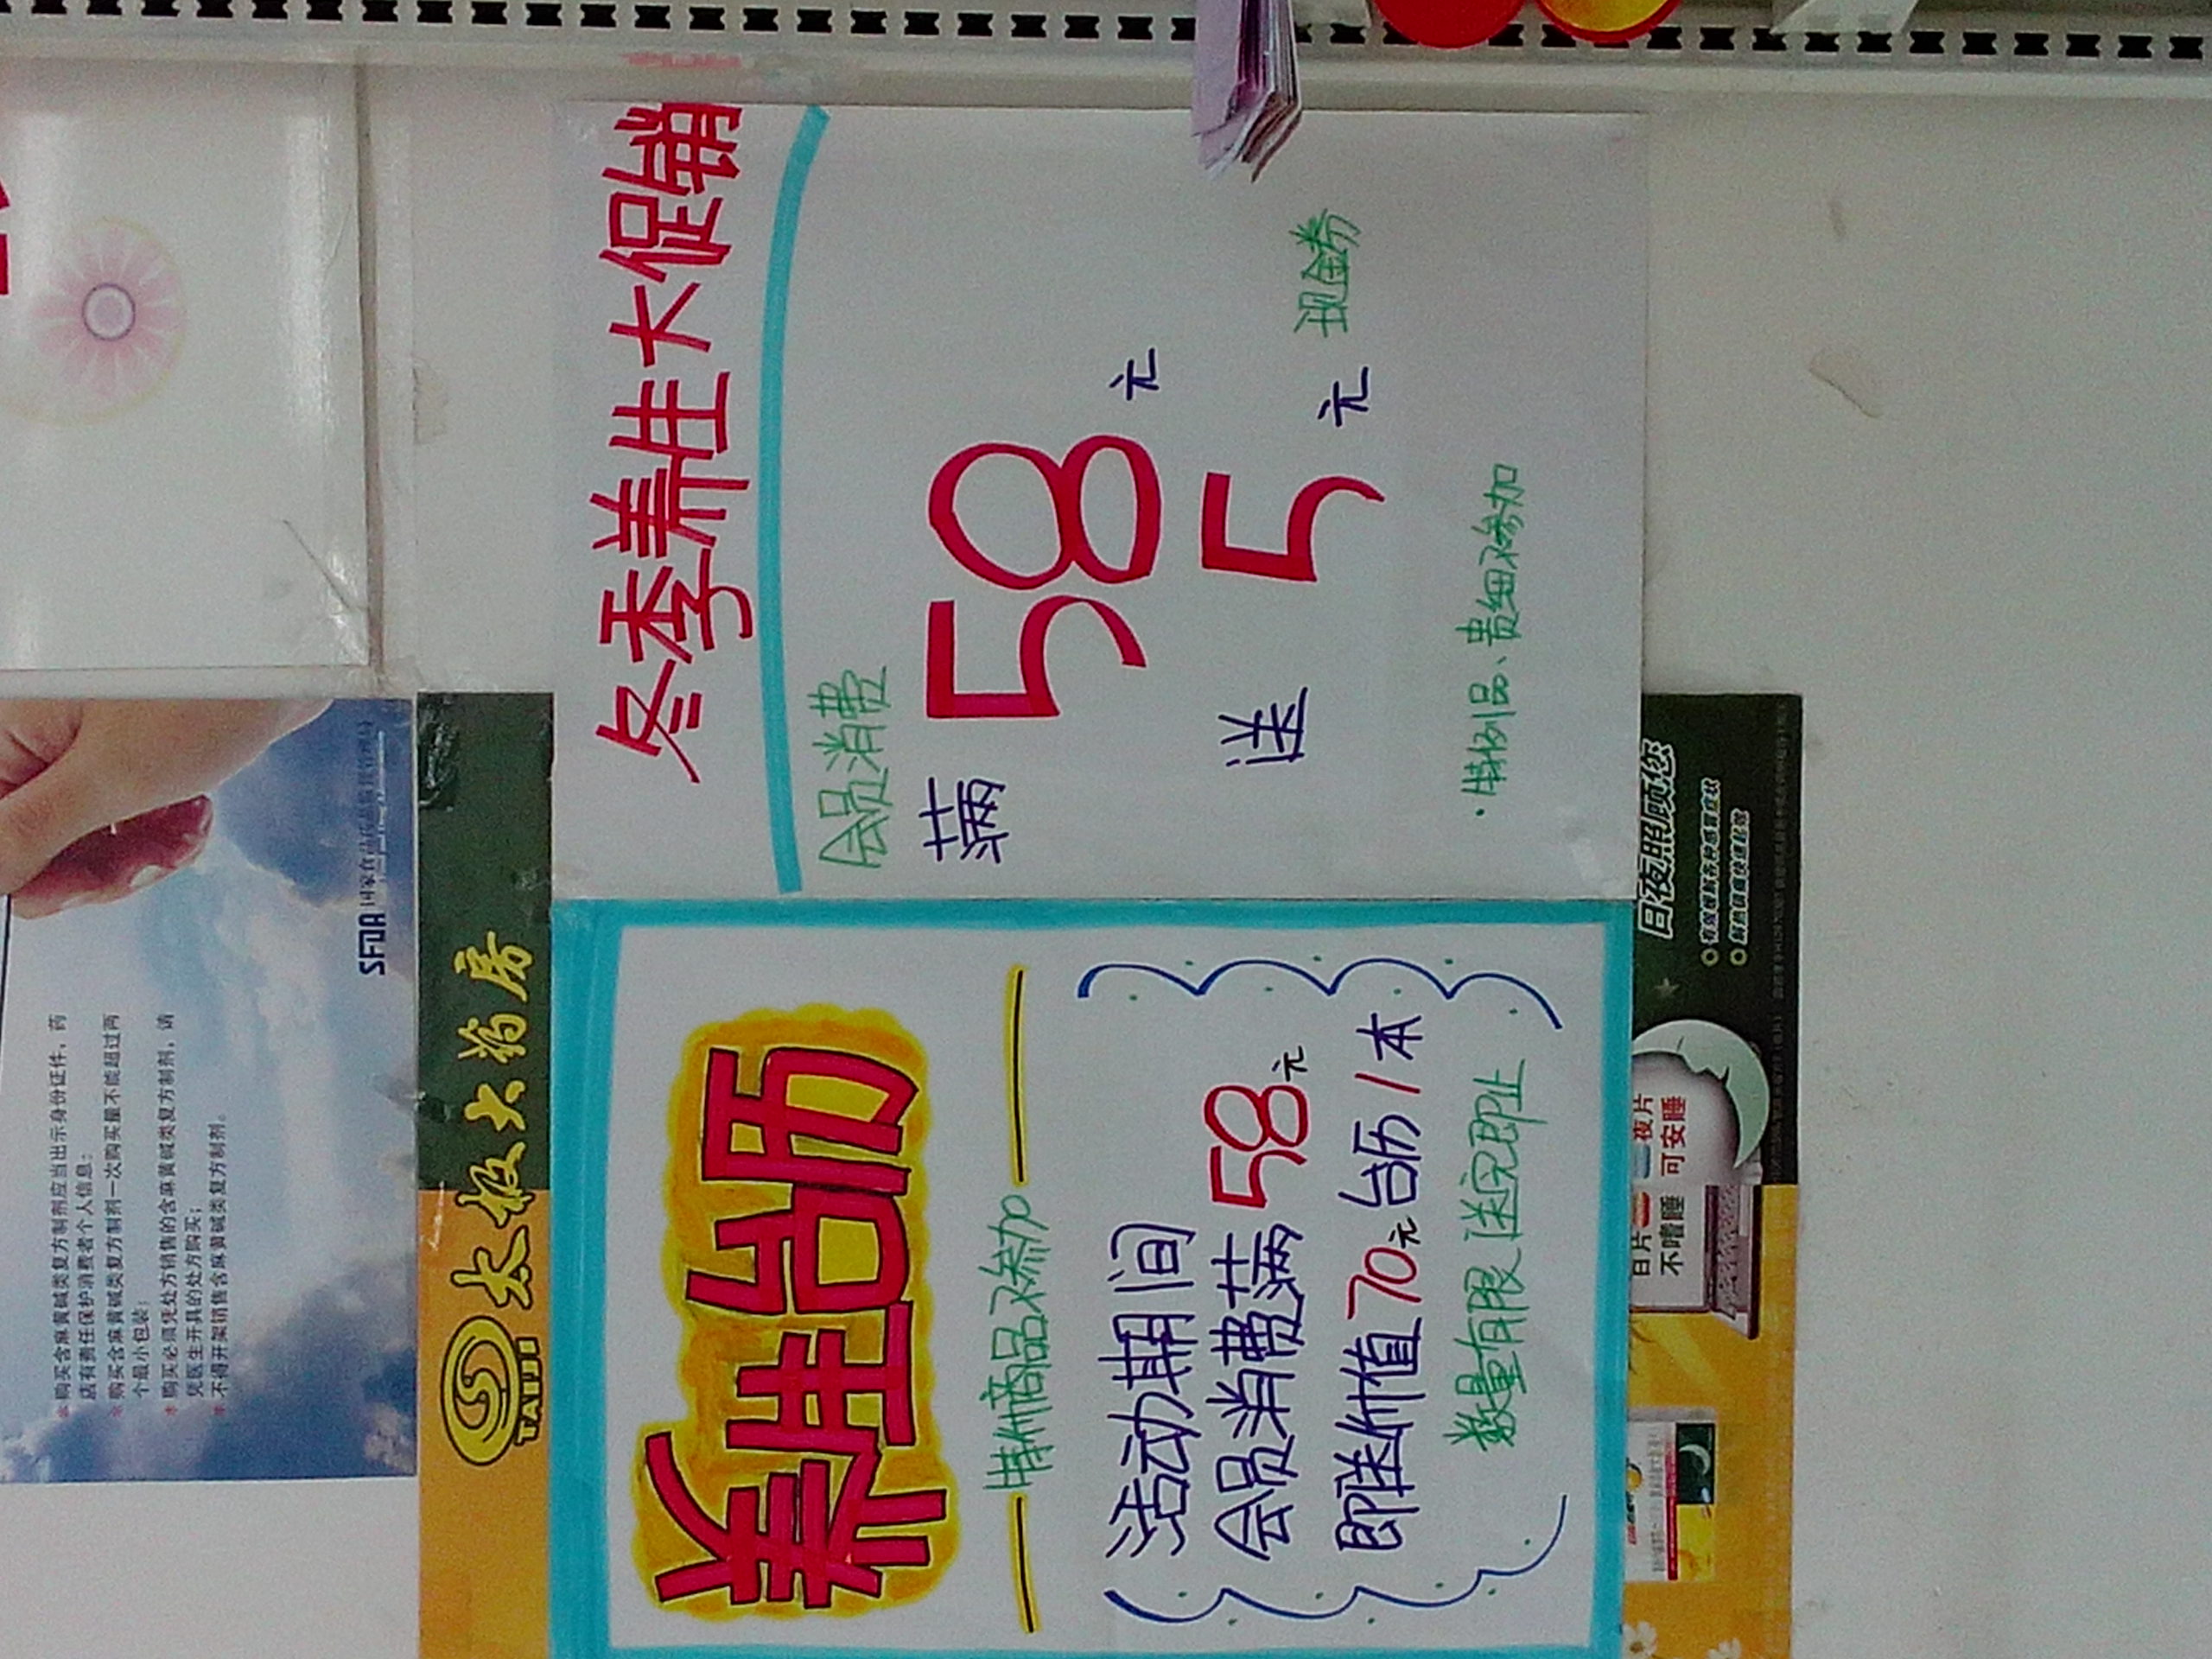 ※购买含麻黄碱类复方制剂应当出示身份证件，药
店有责任保护消费者个人信息；
※购买含麻黄碱类复方制剂一次购买量不能超过两
个最小包装；
※购买必须凭处方销售的含麻黄碱类复方制剂，请
凭医生开具的处方购买；
※不得开架销售含麻黄碱类复方制剂。
SFDA 国家食品药品监督管理局
TAIJI
太极大药房
养生台历
特价商品不参加
活动期间
会员消费满58元
即送价值70元台历1本
数量有限 送完即止
冬季养生大促销
会员消费
满58元
送5元现金券
·特例品、贵细不参加
日夜照顾您
有效缓解各种感冒症状
解热镇痛快速起效
日片 夜片
不嗜睡 可安睡